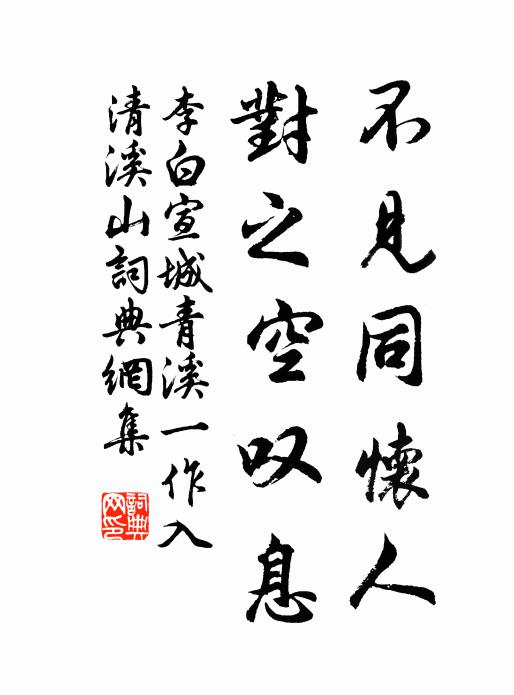 不見同懷人
對之空叹息
李白宣城青溪一作入
清溪山詞典網集
詞典
网印